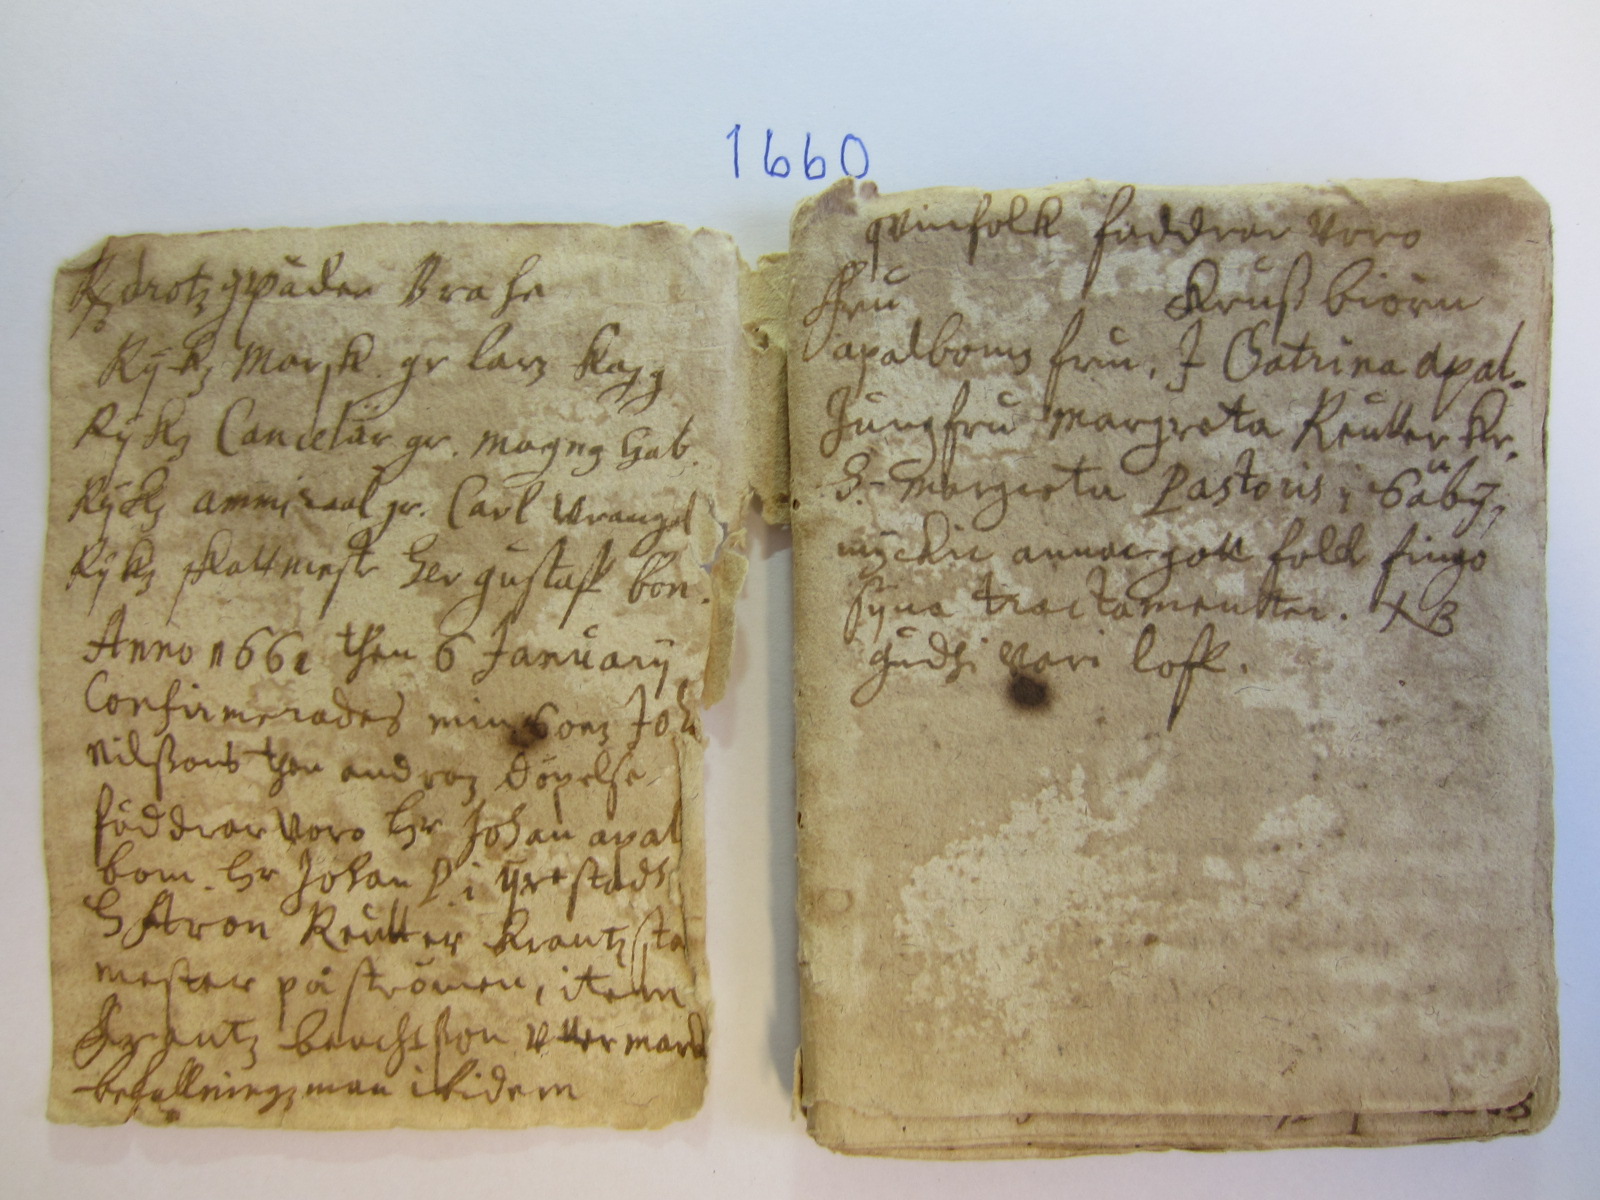 1660
Rz drotz gr päder Brahe
Rykz Marsk. gr larz Kagg
Rykz Cancelär gr. magnq Gab.
Rykz ammiraal gr. Carl Wrangel
Rykz skattmestr Her gustaff bon.
Anno 1661 then 6 January
Confirmerades min Sonz Joh
nilßons then andraz döpelse
fäddrar Voro Hr Johan apal
bom. Hr Johan P. i grestadh
H Aron Reutter Krantz
mester på strömen, item
Frantz bencht ßon
befallningzman ibidem
qvinfolk faddrar Voro
Fru Krußbiörn
apalboms fru. J Catrina apal.
Jungfru Margreta Reutter Kr.
H. Margreta Pastoris i Säby,
myckit annat gott folk fingo
syna tractamentter.
gudhi vari loff.